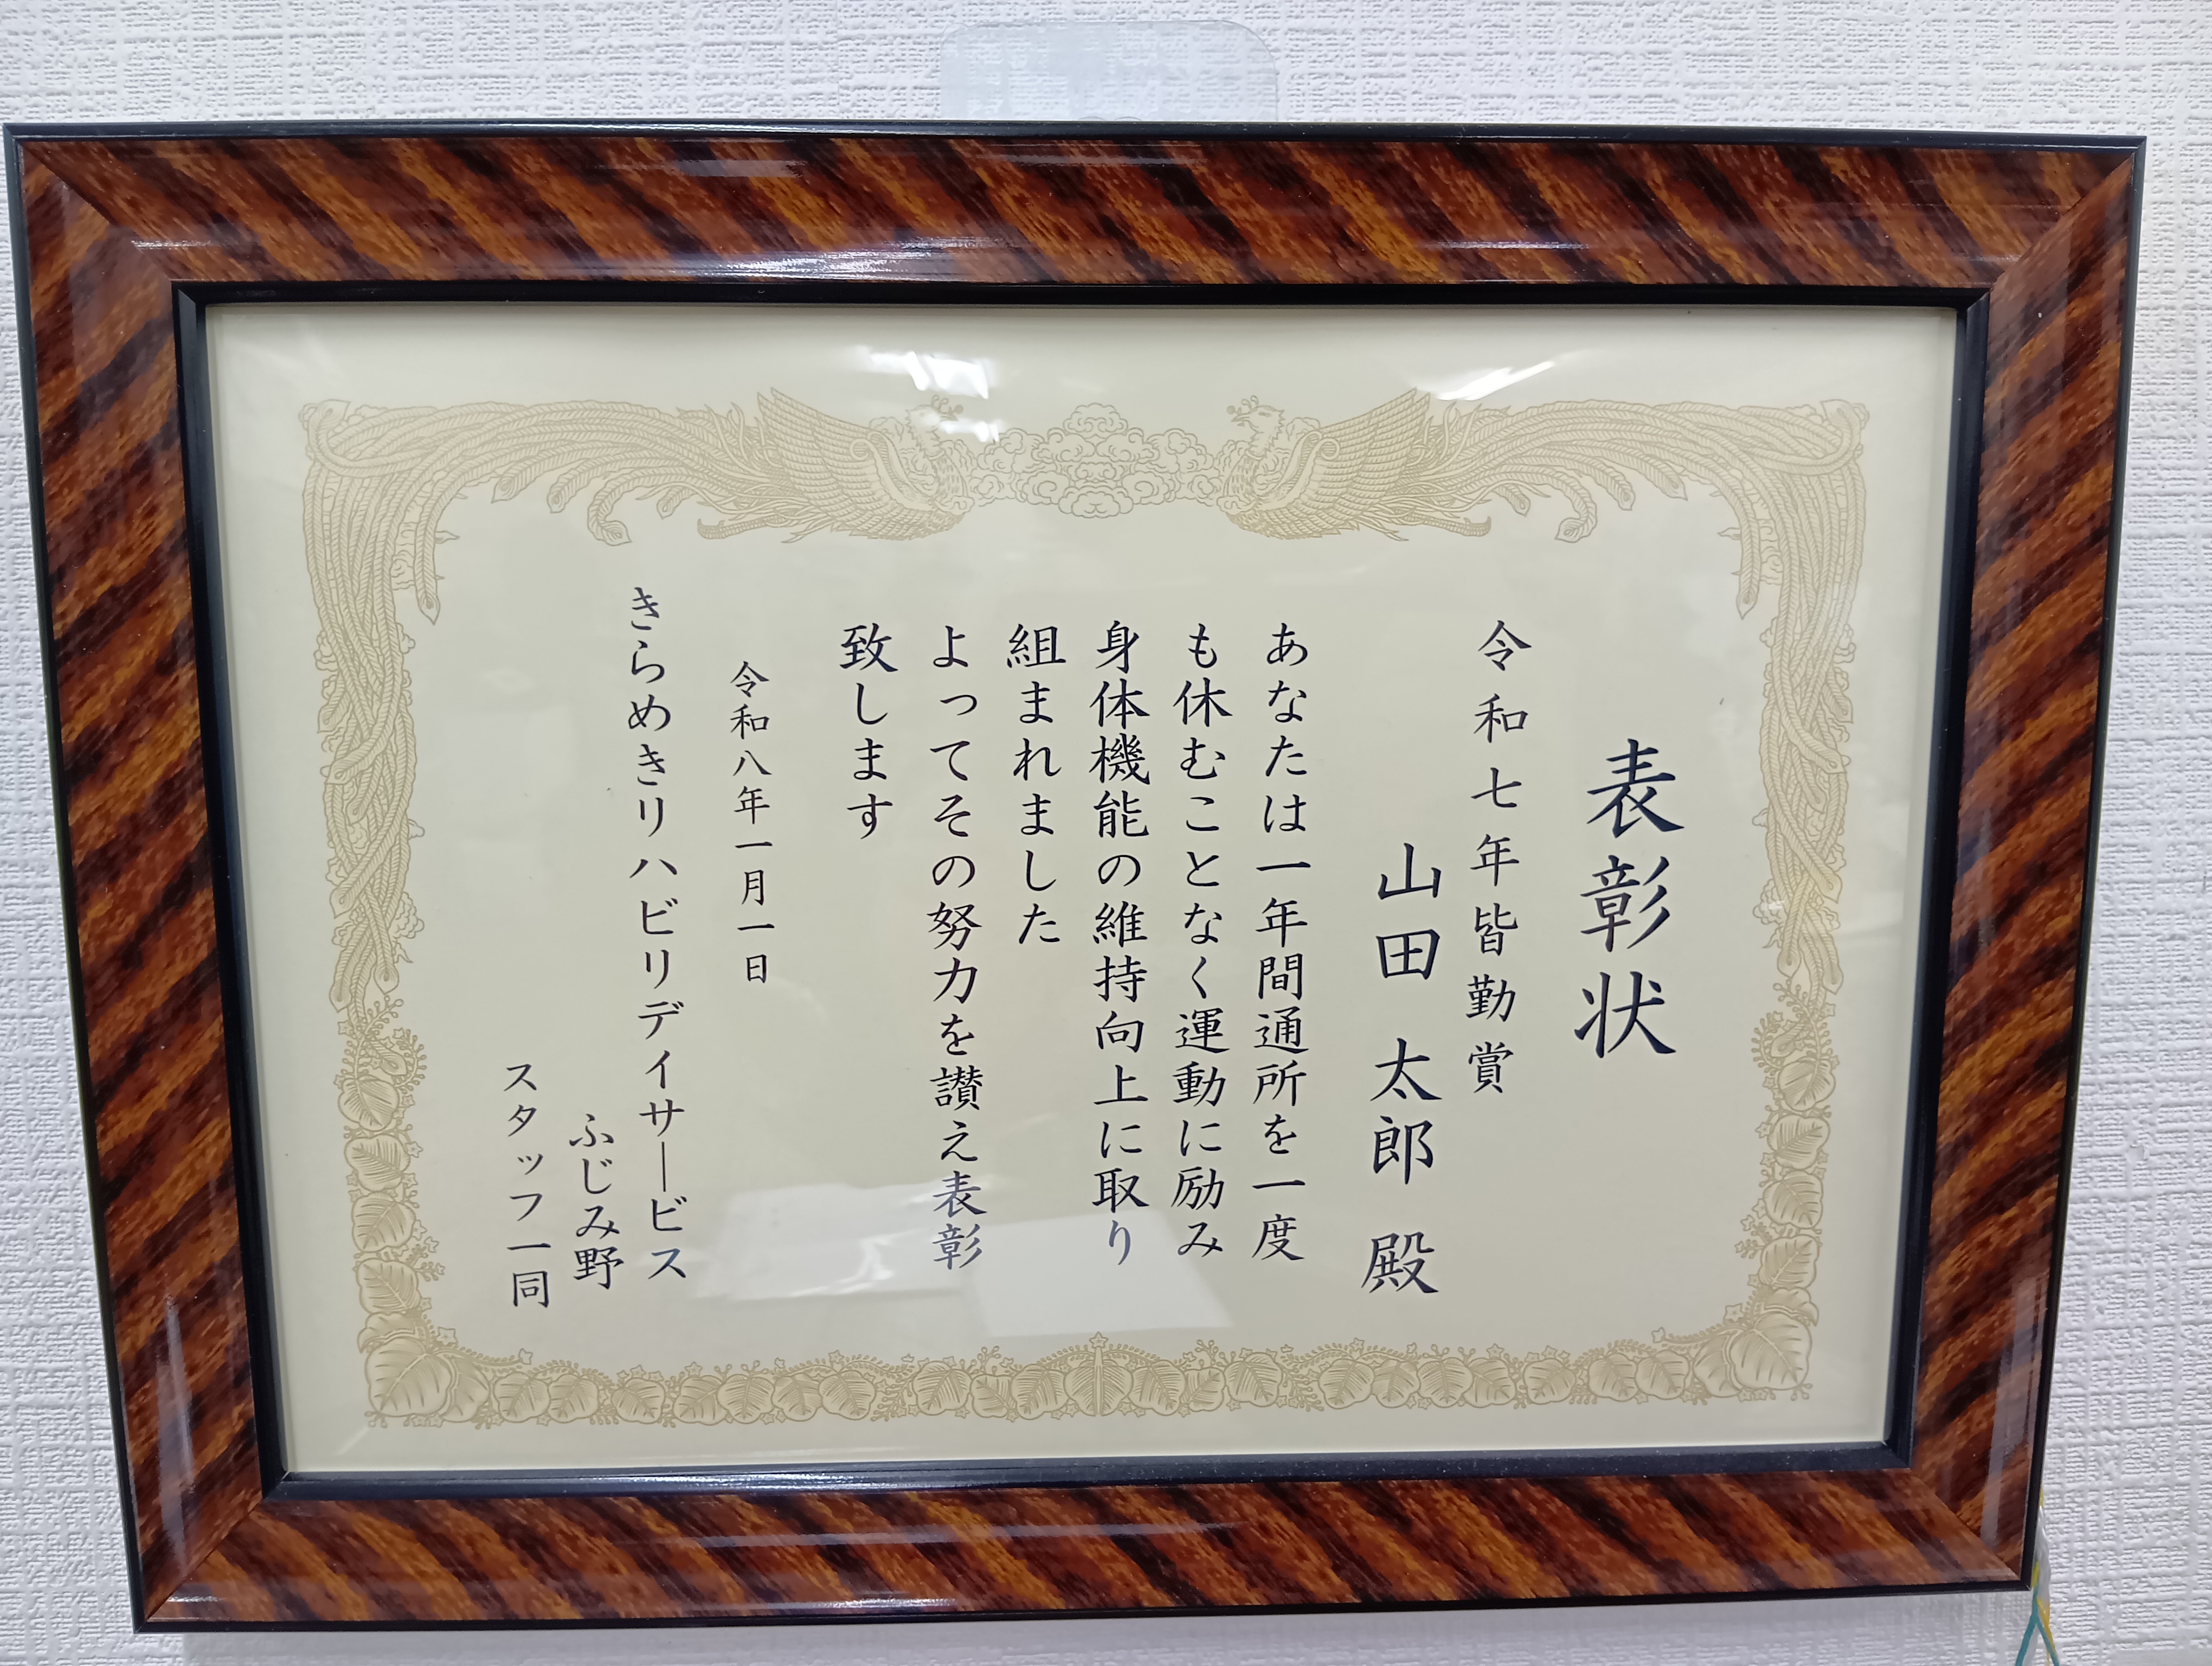 表彰状
令和七年皆勤賞
山田 太郎 殿
あなたは一年間通所を一度
も休むことなく運動に励み
身体機能の維持向上に取り
組まれました
よってその努力を讃え表彰
致します
令和八年一月一日
きらめきリハビリデイサービス
ふじみ野
スタッフ一同